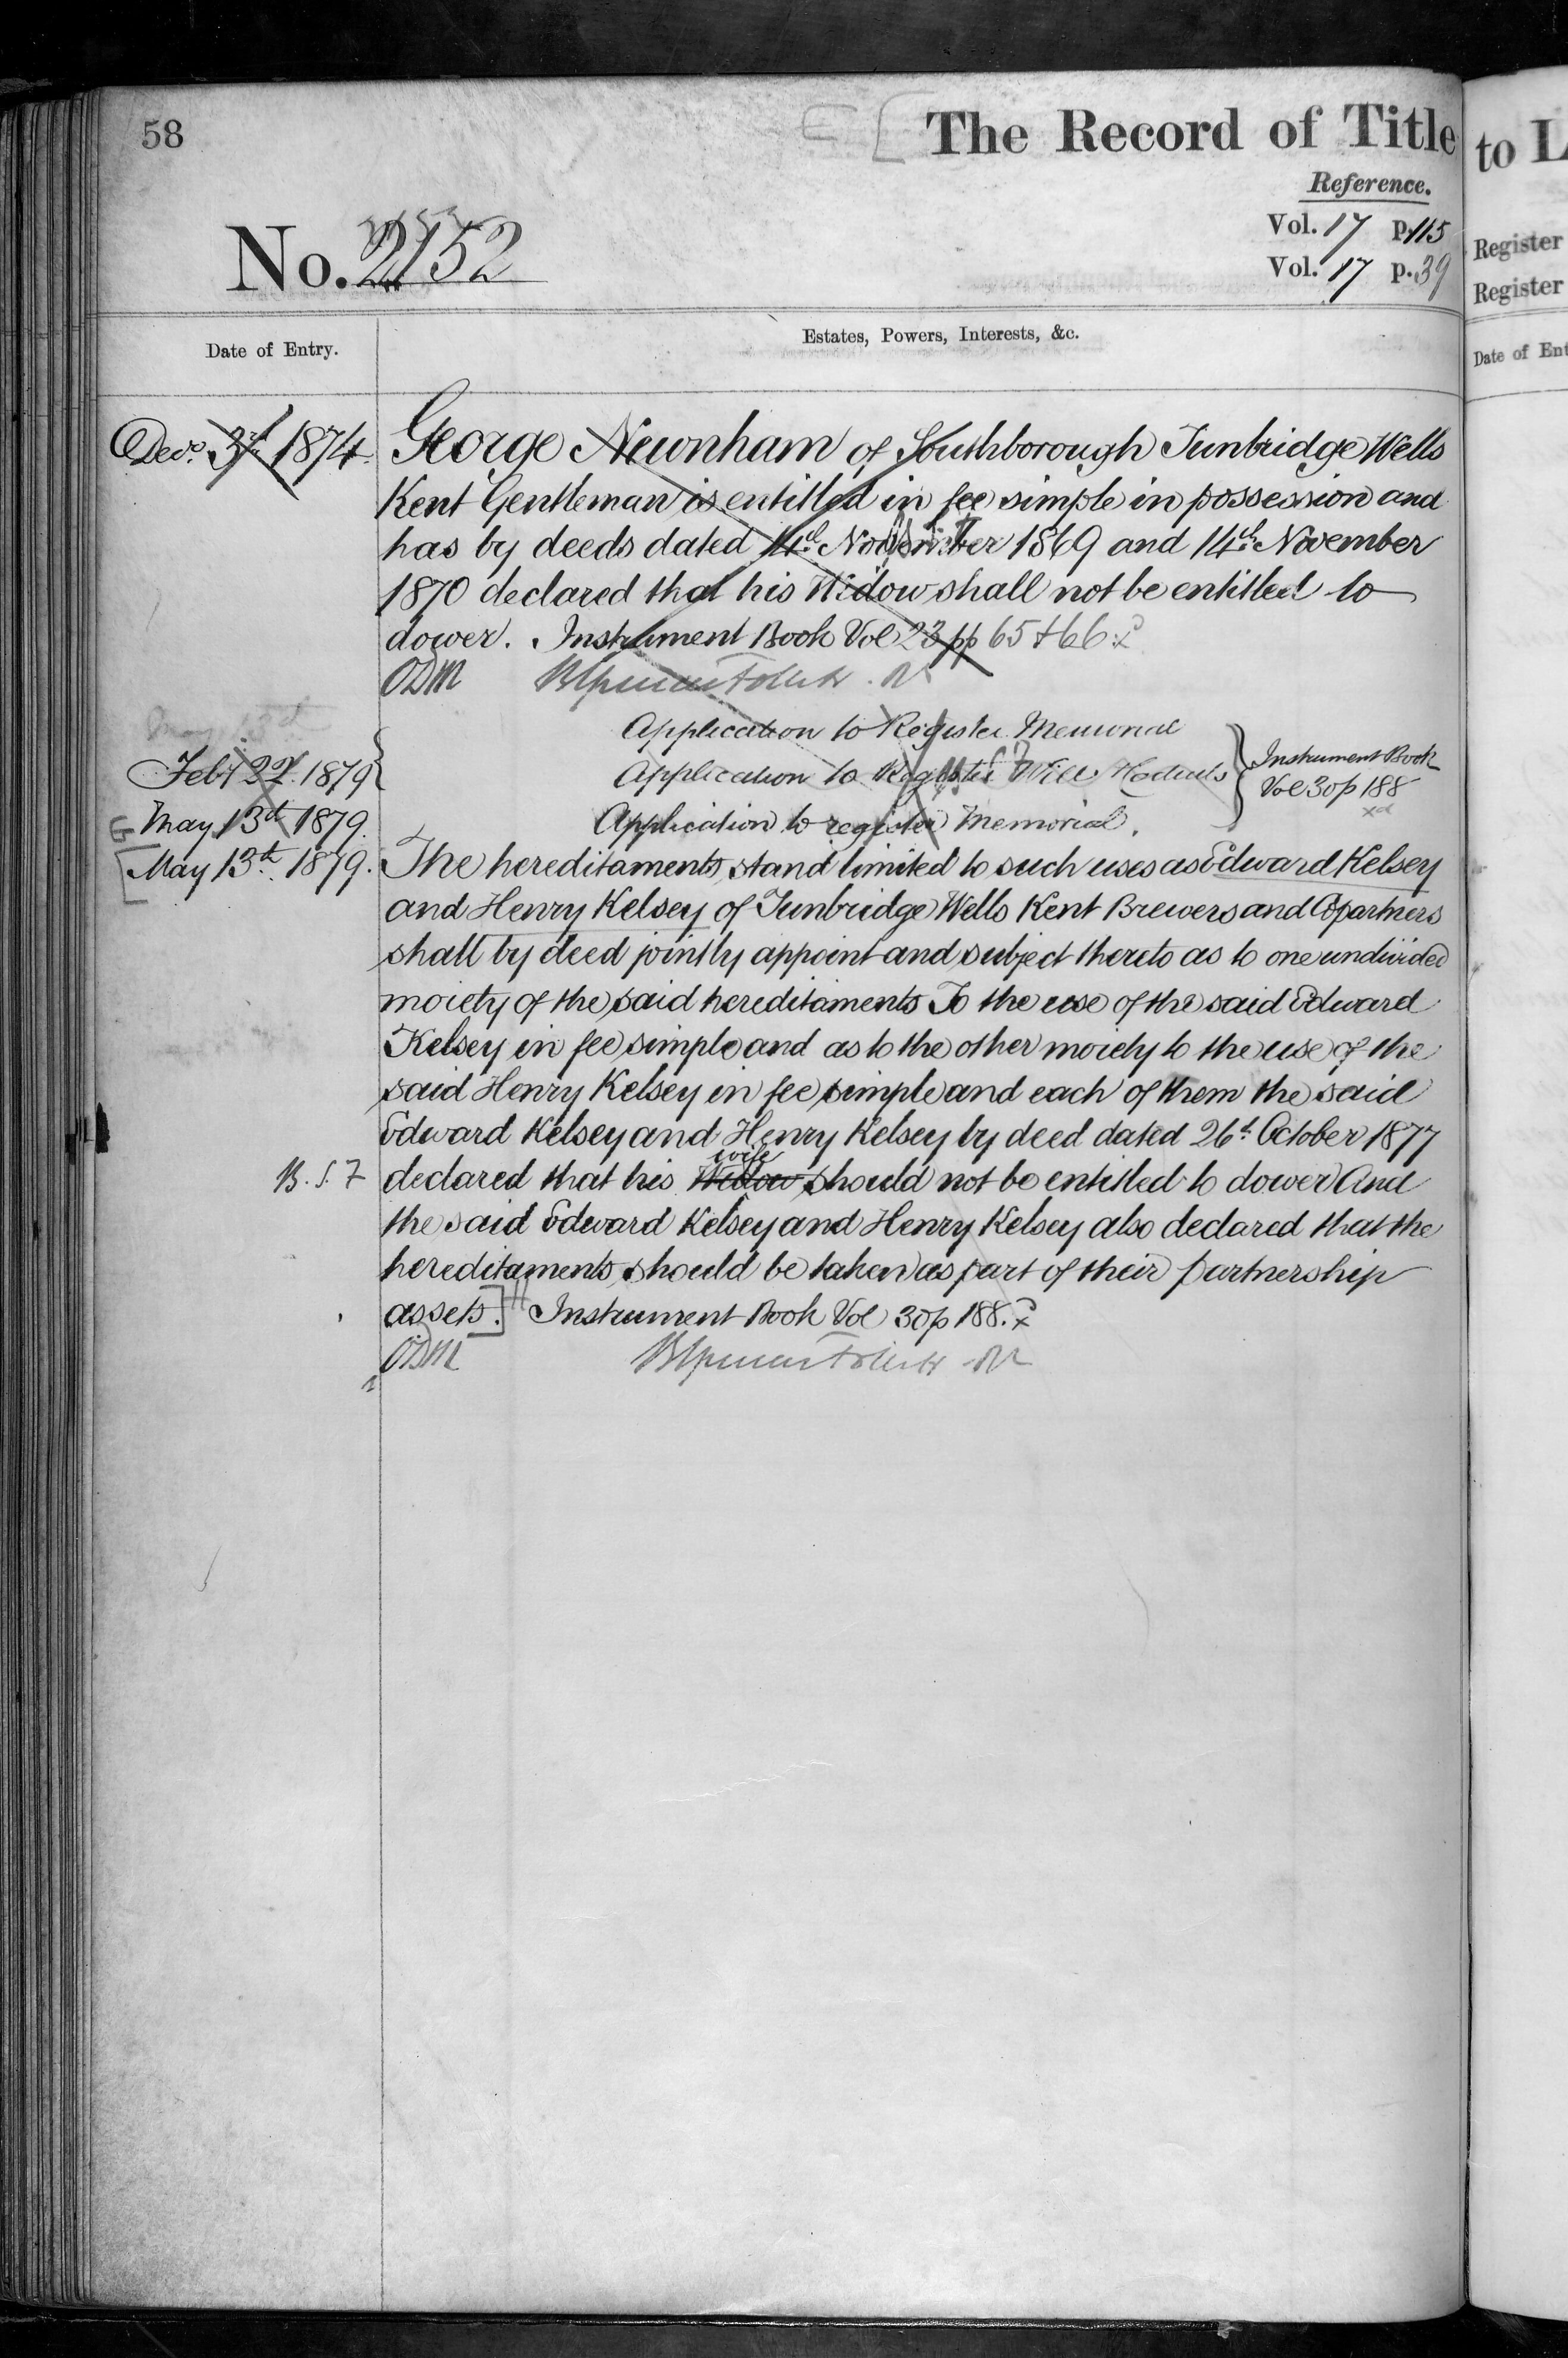 58
The Record of Title
Reference.
Vol. 17 p. 115
Vol. 17 p. 39
No. 2152
Date of Entry.
Estates, Powers, Interests, &c.
Decr. 3rd 1874. George Newnham of Southborough Tunbridge Wells
Kent Gentleman is entitled in fee simple in possession and
has by deeds dated 14th November 1869 and 14th November
1870 declared that his Widow shall not be entitled to
dower. Instrument Book Vol 23 pp 65 & 66.
ODM
May 13th
Application to Register Memorial
Feby 22 1879 Application to Register Will
Instrument Book
Vol 30 p 188
May 13th 1879. Application to register Memorial.
May 13th 1879. The hereditaments stand limited to such uses as Edward Kelsey
and Henry Kelsey of Tunbridge Wells Kent Brewers and Copartners
shall by deed jointly appoint and subject thereto as to one undivided
moiety of the said hereditaments To the use of the said Edward
Kelsey in fee simple and as to the other moiety to the use of the
said Henry Kelsey in fee simple and each of them the said
Edward Kelsey and Henry Kelsey by deed dated 26th October 1877
wife
B.S.F declared that his Widow should not be entitled to dower And
the said Edward Kelsey and Henry Kelsey also declared that the
hereditaments should be taken as part of their partnership
assets.] Instrument Book Vol 30 p 188.
ODM
to L
Register
Register
Date of Ent